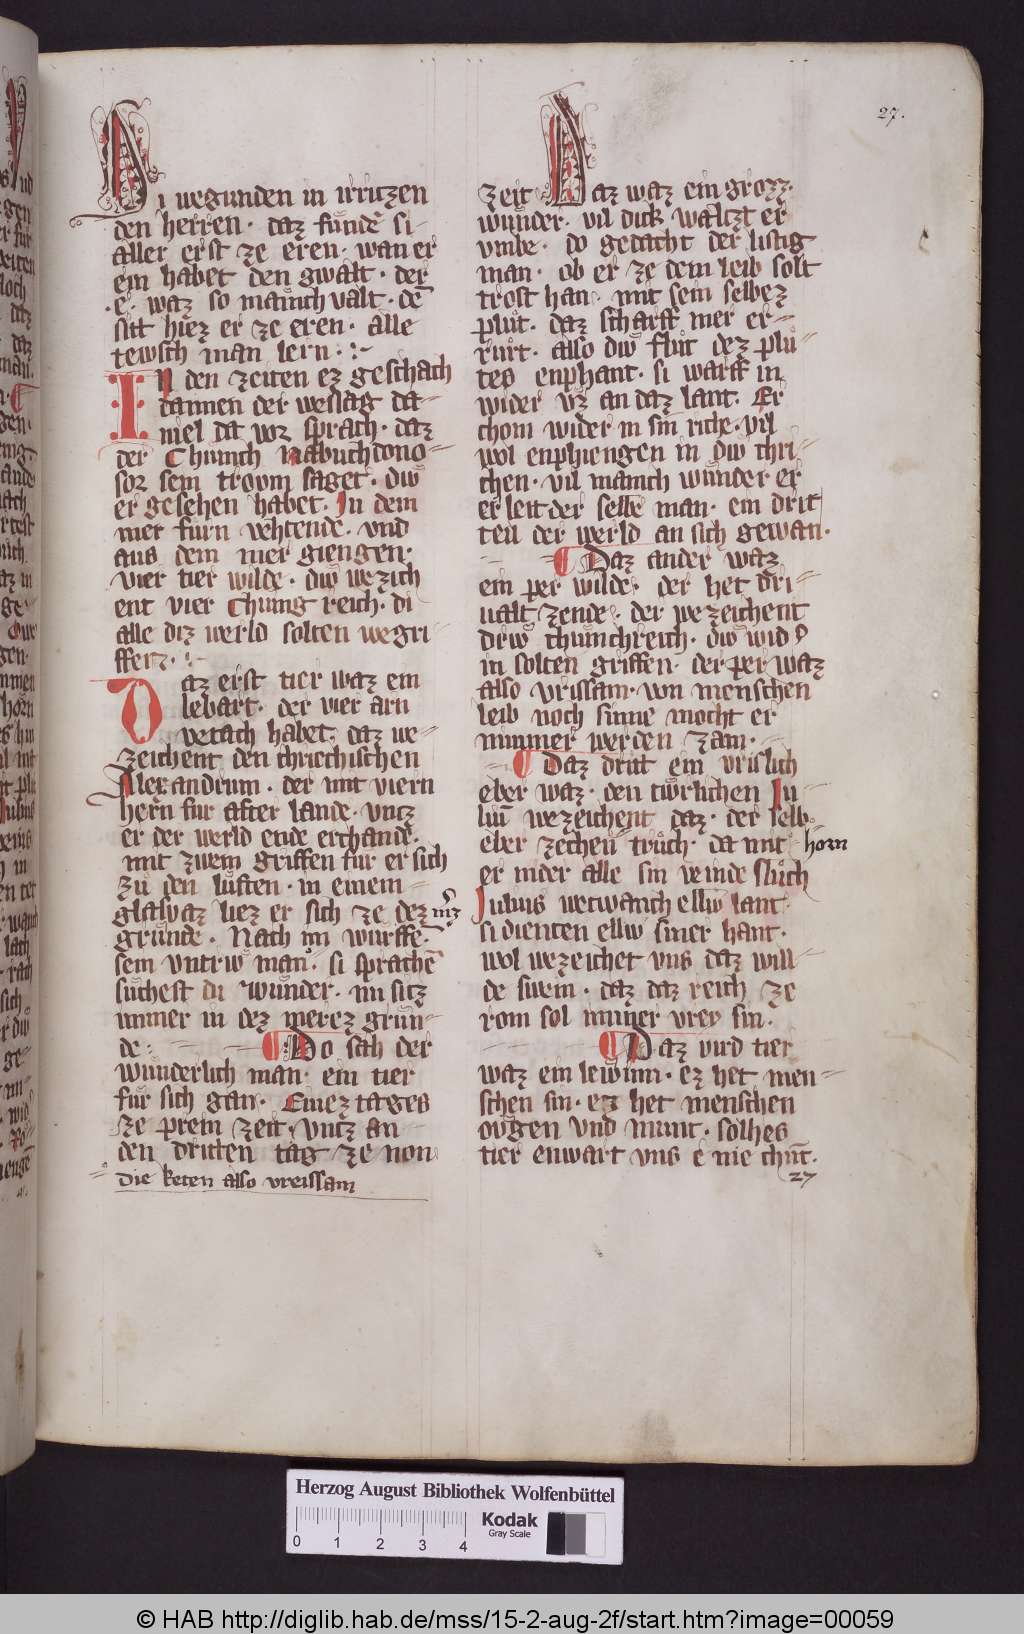 27.
Di wegunden in irritzen
den herren · daz fundē si-
aller erst ze eren · wan er
ein habet den gwalt · der
·e· waz so manich valt · dē
sitt hiez er ze eren · alle
tewsch man lern ·
IN den zeiten ez geschach
dannen der weslag da-
niel da vor sprach · daz
der Chunich Nabuchdono-
sor sein trovm saget · diw
er gesehen habet · In dem
mer furn vehtende · vnd
aus dem mer giengen ·
vier tier wilde · diw wezich
ent vier Chunig reich · di
alle diz werld solten wegri-
ffen ·
Daz erst tier waz ein
lebart · der vier arn
vetach habet · daz we-
zeichent den chriechischen
Alexandrum · der mit viern
hern fur after lande · vntz
er der werld ende erchande ·
mit zwein griffen fur er sich
zu den luften · in einem
glasvaz liez er sich ze dez mrz
grunde · Nach im wurffē
sein vntriw man · si sprachē
suchest du wunder · nu sitz
immer in dez merez grun-
de · Do sach der
wunderlich man · ein tier
fur sich gan · Einez tages
ze prein zeit · vntz an
den dritten tag ze non
die keten also vreissam
zeit Daz waz ein grozz
wunder · vil dick walczt er
vmbe · do gedacht der listig
man · ob er ze dem leib solt
trost han · mit sein selbez
plut · daz scharff mer er-
rurt · also diw flut dez plu-
tes enphant · si warff in
wider vz an daz lant · Er
chom wider in sin riche · vil
wol enphiengen in diw chri-
chen · vil manich wunder er
erleit der selbe man · ein drit
teil der werld an sich gewan ·
Daz ander waz
ein per wilde · der het dri-
ualt zende · der pezeichent
driw chunichreich · diw wid
in solten griffen · der per waz
also vrissam · von menschen
leib noch sinne mocht er
nimmer werden zam ·
Daz dritt ein vrislich
eber waz · den tiwrlichen Iu-
lium wezeichent daz · der selb
eber zechen truch · da mit horn
er nider alle sin veinde sluch
Iulius wetwanch elliw lant
si dienten elliw siner hant ·
wol wezeichet vns daz wil-
de swein · daz daz reich ze
rom sol immer vrey sin ·
Daz vird tier
waz ein lewinn · ez het men-
schen sin · ez het menschen
ovgen vnd munt · solhes
tier enwart vns e nie chūt ·
27
Herzog August Bibliothek Wolfenbüttel
0 1 2 3 4
Kodak
Gray Scale
© HAB http://diglib.hab.de/mss/15-2-aug-2f/start.htm?image=00059